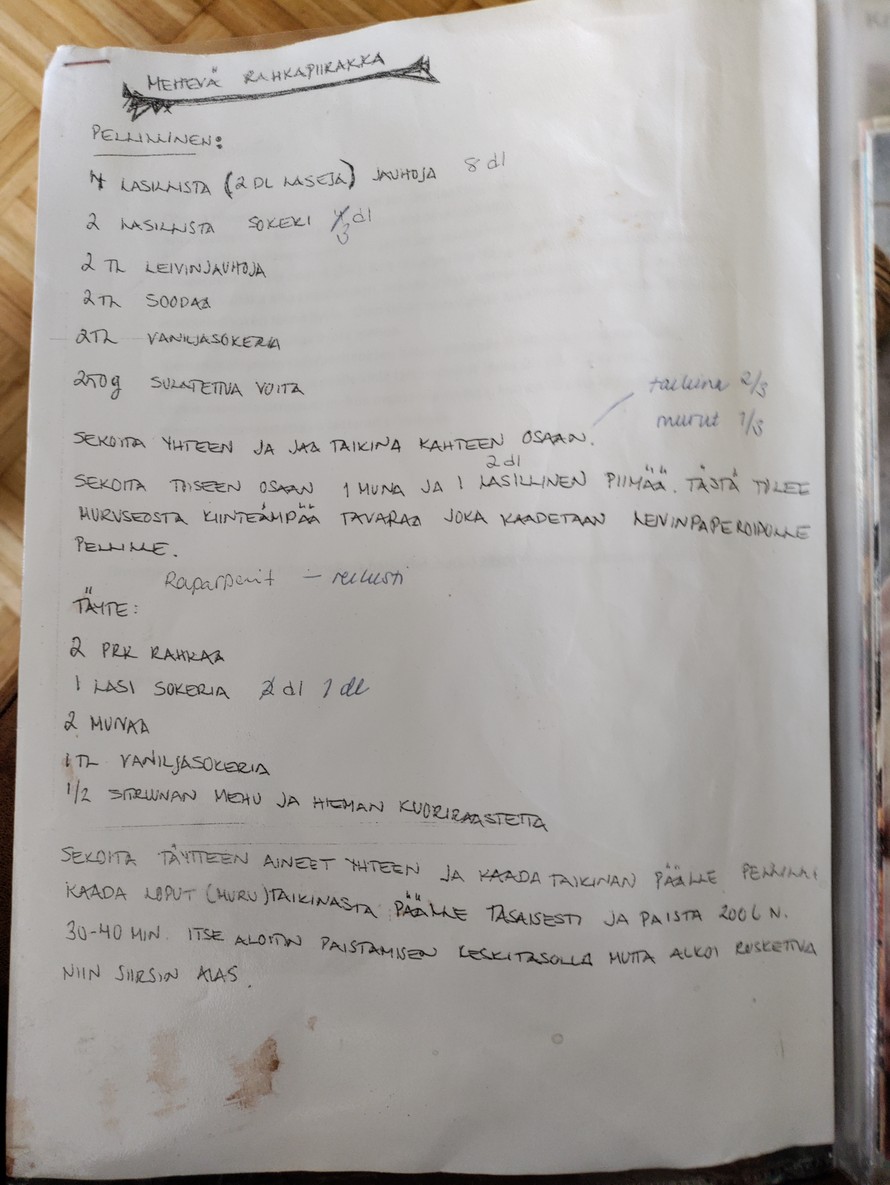 MEHEVÄ RAHKAPIIRAKKA
PELLILLINEN:
4 LASILLISTA (2 DL LASEJA) JAUHOJA 8 dl
2 LASILLISTA SOKERI 4 dl
3
2 TL LEIVINJAUHOJA
2 TL SOODAA
2TL VANILJASOKERIA
250g SULATETTUA VOITA
taikina 2/3
murut 1/3
SEKOITA YHTEEN JA JAA TAIKINA KAHTEEN OSAAN.
2 dl
SEKOITA TOISEEN OSAAN 1 MUNA JA 1 LASILLINEN PIIMÄÄ. TÄSTÄ TULEE
MURUSEOSTA KIINTEÄMPÄÄ TAVARAA JOKA KAADETAAN LEIVINPAPEROIDULLE
PELLILLE.
Raparperit – reilusti
TÄYTE:
2 PRK RAHKAA
1 LASI SOKERIA 2 dl 1 dl
2 MUNAA
1 TL VANILJASOKERIA
1/2 SITRUUNAN MEHU JA HIEMAN KUORIRAASTETTA
SEKOITA TÄYTTEEN AINEET YHTEEN JA KAADA TAIKINAN PÄÄLLE PELLILLE
KAADA LOPUT (MURU)TAIKINASTA PÄÄLLE TASAISESTI JA PAISTA 200C N.
30-40 MIN. ITSE ALOITIN PAISTAMISEN KESKITASOLLA MUTTA ALKOI RUSKETTUA
NIIN SIIRSIN ALAS.